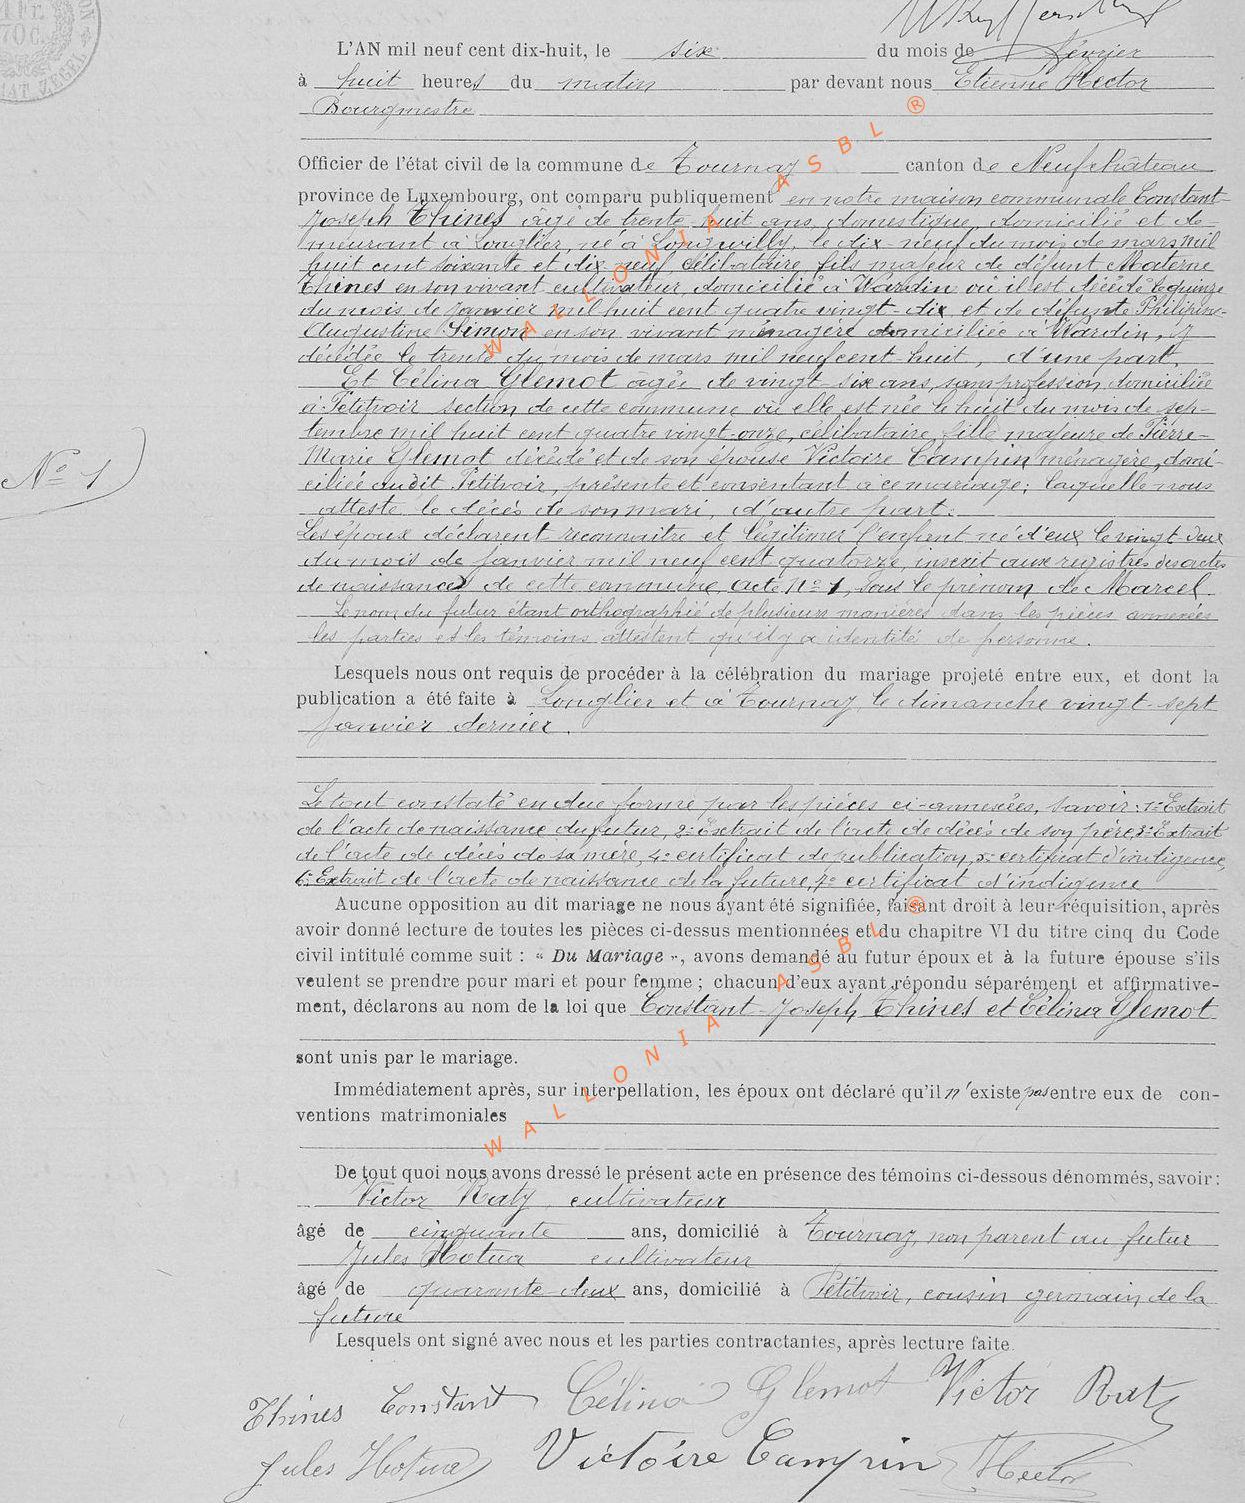 L'AN mil neuf cent dix-huit, le six du mois de février
à huit heures du matin par devant nous Etienne Hector
Bourgmestre
Officier de l'état civil de la commune de Tournay canton de Neufchâteau
province de Luxembourg, ont comparu publiquement en notre maison communale Constant-
Joseph Thines âgé de trente-huit ans, domestique, domicilié et de-
meurant à Longlier, né à Longwilly, le dix-neuf du mois de mars mil
huit cent soixante et dix-neuf, célibataire, fils majeur de défunt Materne
Thines en son vivant cultivateur, domicilié à Wardin où il est décédé le quinze
du mois de janvier mil huit cent quatre vingt-dix et de défunte Philipine-
Augustine Simon en son vivant ménagère domiciliée à Wardin, y
décédée le trente du mois de mars mil neuf cent huit, d'une part,
Et Célina Glemot âgée de vingt-six ans, sans profession, domiciliée
à Petitvoir section de cette commune où elle est née le huit du mois de sep-
tembre mil huit cent quatre vingt-onze, célibataire, fille majeure de Pierre-
Marie Glemot décédé et de son épouse Victoire Campin ménagère, domi-
ciliée audit Petitvoir, présente et consentant à ce mariage; laquelle nous
atteste le décès de son mari, d'autre part.
Les époux déclarent reconnaître et légitimer l'enfant né d'eux le vingt-deux
du mois de janvier mil neuf cent quatorze, inscrit aux registres des actes
de naissances de cette commune, acte N° 1, sous le prénom de Marcel.
Le nom du futur étant orthographié de plusieurs manières dans les pièces annexées
les parties et les témoins attestent qu'il y a identité de personne.
N° 1
Lesquels nous ont requis de procéder à la célébration du mariage projeté entre eux, et dont la
publication a été faite à Longlier et à Tournay le dimanche vingt-sept
janvier dernier.
Le tout constaté en due forme par les pièces ci-annexées, savoir: 1° Extrait
de l'acte de naissance du futur, 2° Extrait de l'acte de décès de son père, 3° Extrait
de l'acte de décès de sa mère, 4° certificat de publication, 5° certificat d'indigence,
6° Extrait de l'acte de naissance de la future, 7° certificat d'indigence
Aucune opposition au dit mariage ne nous ayant été signifiée, faisant droit à leur réquisition, après
avoir donné lecture de toutes les pièces ci-dessus mentionnées et du chapitre VI du titre cinq du Code
civil intitulé comme suit : « Du Mariage », avons demandé au futur époux et à la future épouse s'ils
veulent se prendre pour mari et pour femme ; chacun d'eux ayant répondu séparément et affirmative-
ment, déclarons au nom de la loi que Constant-Joseph Thines et Célina Glemot
sont unis par le mariage.
Immédiatement après, sur interpellation, les époux ont déclaré qu'il n'existe pas entre eux de con-
ventions matrimoniales
De tout quoi nous avons dressé le présent acte en présence des témoins ci-dessous dénommés, savoir :
Victor Raty, cultivateur
âgé de cinquante ans, domicilié à Tournay, non parent au futur
Jules Hotua cultivateur
âgé de quarante-deux ans, domicilié à Petitvoir, cousin germain de la
future
Lesquels ont signé avec nous et les parties contractantes, après lecture faite.
Thines Constant Célina Glemot Victor Raty
Jules Hotua Victoire Campin Hector
WALLONIA ASBL ®
WALLONIA ASBL ®